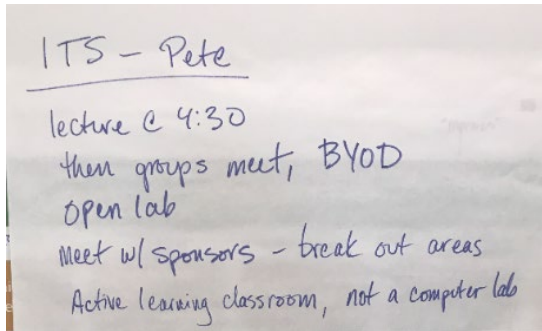 ITS - Pete
lecture @ 4:30
then groups meet, BYOD
open lab
Meet w/ sponsors - break out areas
Active learning classroom, not a computer lab